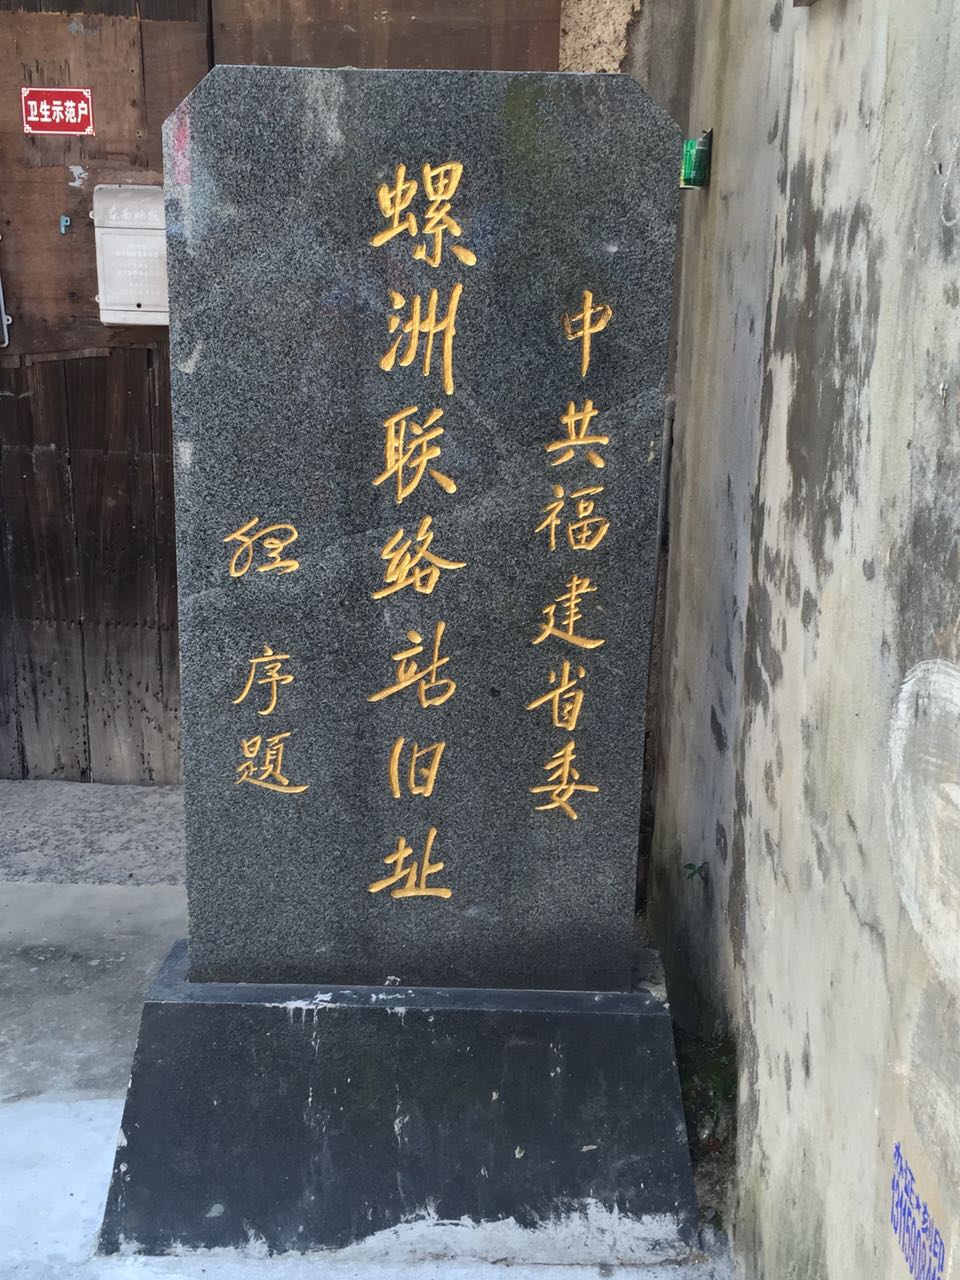 中共福建省委
螺洲联络站旧址
序题
卫生示范户
东南晚报
P